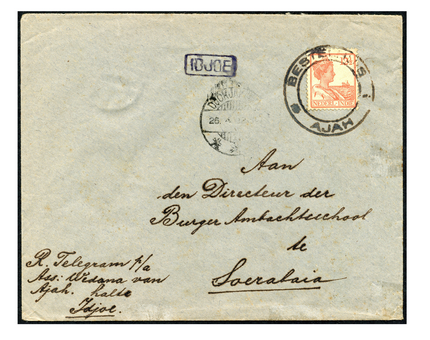 IDJOE
BESTELHUIS
AJAH
NEDERL. INDIË
26.
Aan
den Directeur der
Burger Ambachtsschool
te
Soerabaia
R. Telegram t/a
Ass: Wedana van
Ajah. halte
Idjoe.